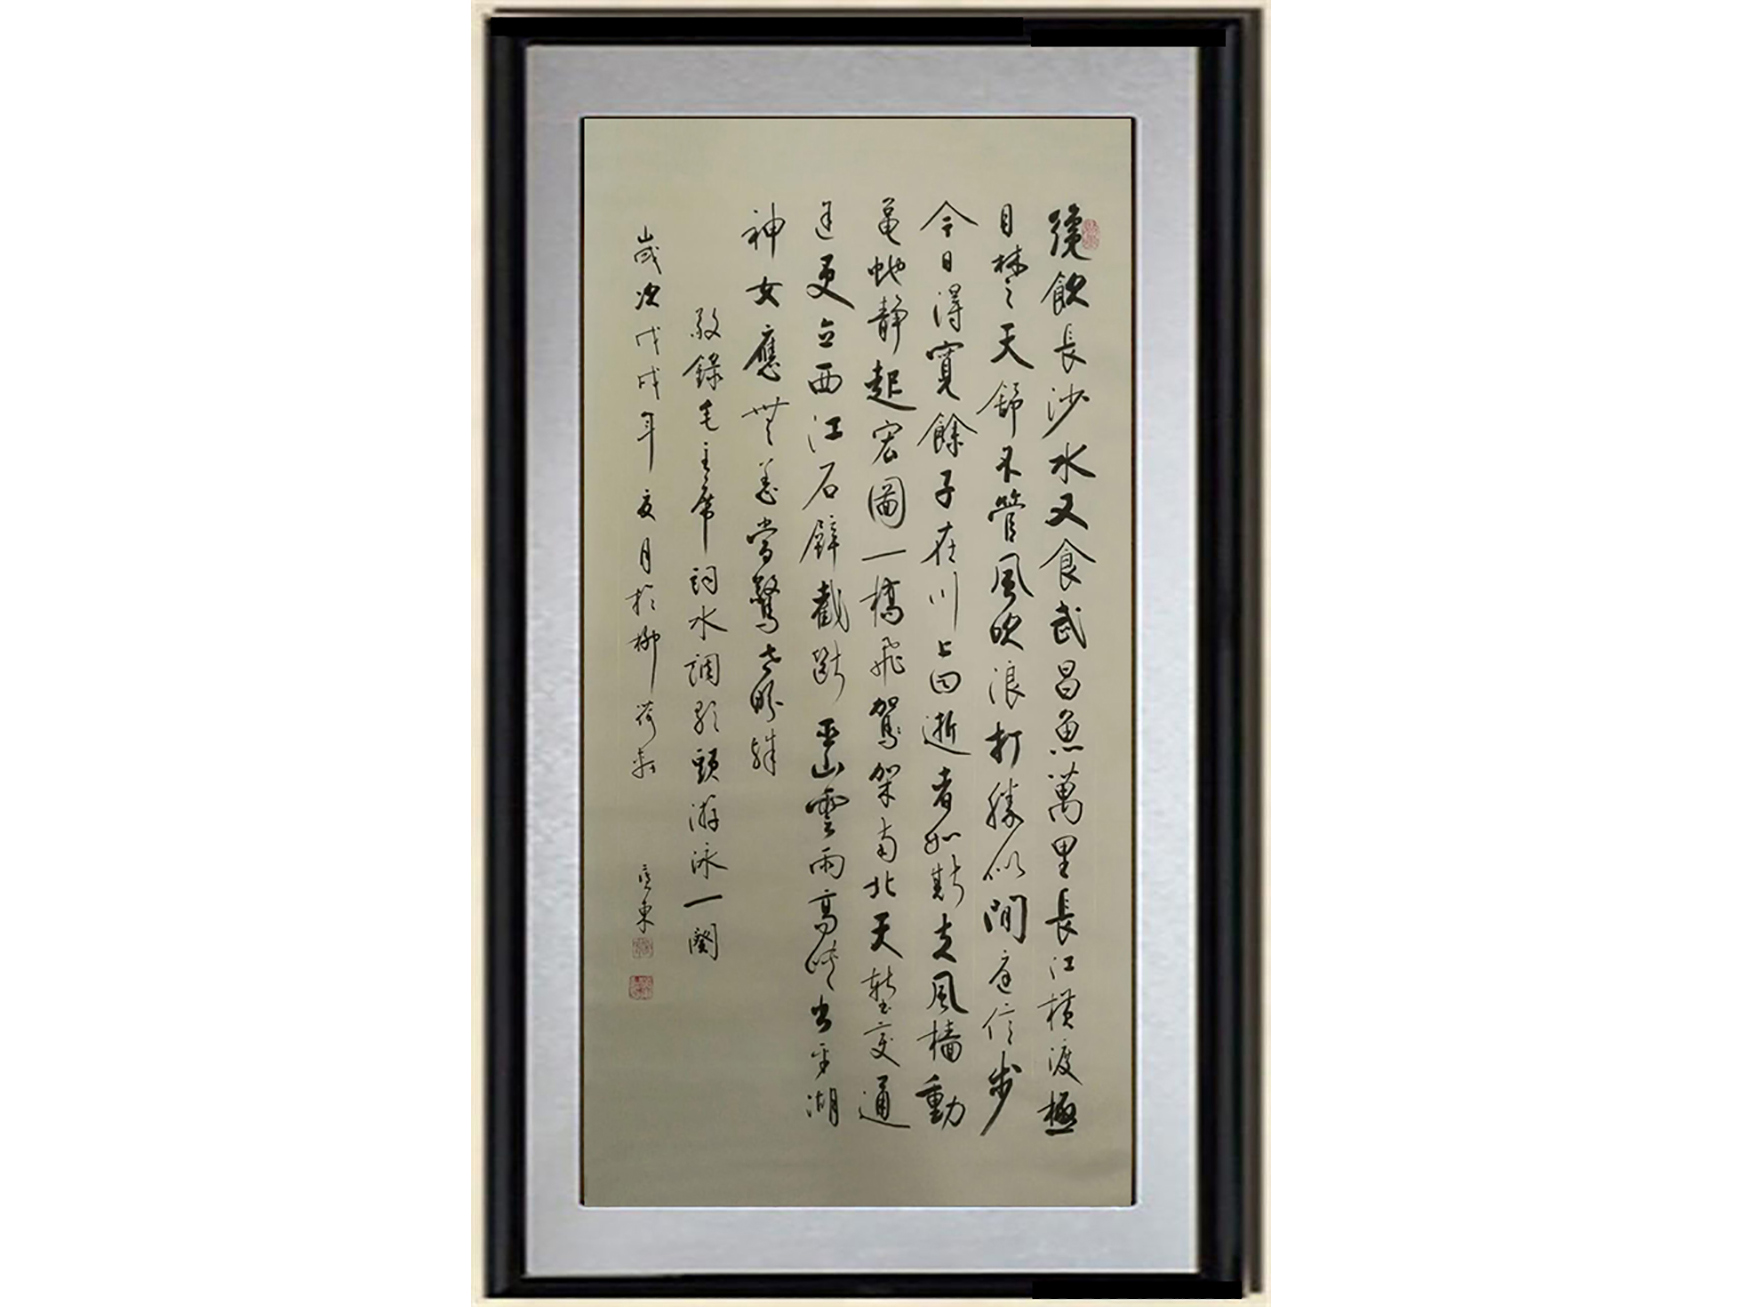 纔飲長沙水又食武昌魚萬里長江橫渡極
目楚天舒不管風吹浪打勝似閒庭信步
今日得寬餘子在川上曰逝者如斯夫風檣動
龜蛇靜起宏圖一橋飛駕架南北天塹變通
途更立西江石壁截斷巫山雲雨高峽出平湖
神女應無恙當驚世界殊
敬錄毛主席詞水調歌頭游泳一闋
歲次戊戌年夏月於柳荷軒 東